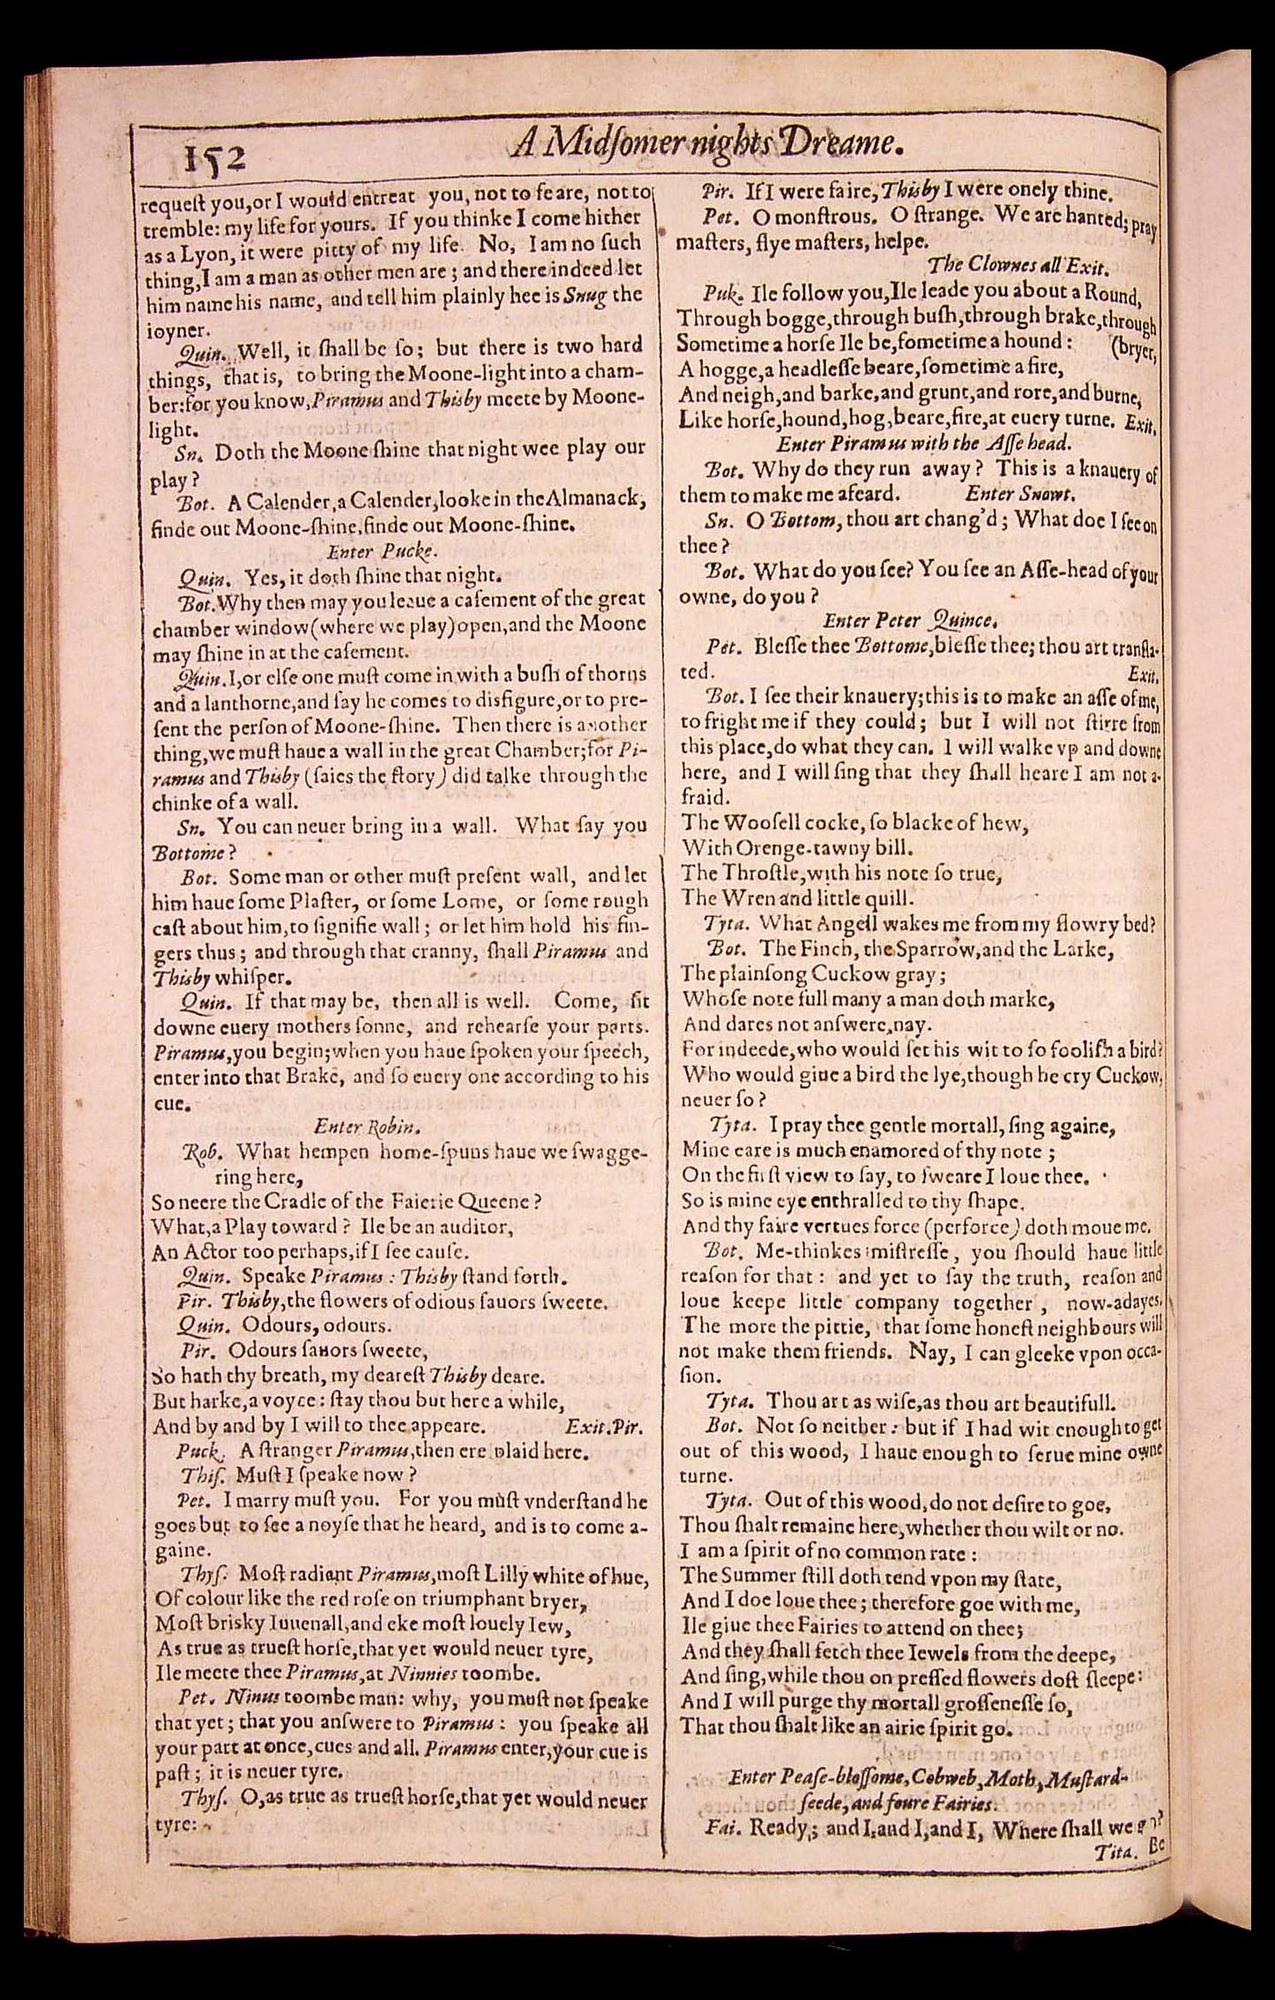 152
A Midſomer nights Dreame.
requeſt you,or I would entreat you, not to feare, not to
tremble: my life for yours. If you thinke I come hither
as a Lyon, it were pitty of my life. No, I am no ſuch
thing,I am a man as other men are; and there indeed let
him name his name, and tell him plainly hee is Snug the
ioyner.
Quin. Well, it ſhall be ſo; but there is two hard
things, that is, to bring the Moone-light into a cham-
ber:for you know,Piramus and Thisby meete by Moone-
light.
Sn. Doth the Moone ſhine that night wee play our
play?
Bot. A Calender,a Calender,looke in the Almanack,
finde out Moone-ſhine,finde out Moone-ſhine.
Enter Pucke.
Quin. Yes, it doth ſhine that night.
Bot.Why then may you leaue a caſement of the great
chamber window(where we play)open,and the Moone
may ſhine in at the caſement.
Quin.I,or elſe one muſt come in with a buſh of thorns
and a lanthorne,and ſay he comes to disfigure,or to pre-
ſent the perſon of Moone-ſhine. Then there is another
thing,we muſt haue a wall in the great Chamber;for Pi-
ramus and Thisby (ſaies the ſtory) did talke through the
chinke of a wall.
Sn. You can neuer bring in a wall. What ſay you
Bottome?
Bot. Some man or other muſt preſent wall, and let
him haue ſome Plaſter, or ſome Lome, or ſome rough
caſt about him,to ſignifie wall; or let him hold his fin-
gers thus; and through that cranny, ſhall Piramus and
Thisby whiſper.
Quin. If that may be, then all is well. Come, ſit
downe euery mothers ſonne, and rehearſe your parts.
Piramus,you begin;when you haue ſpoken your ſpeech,
enter into that Brake, and ſo euery one according to his
cue.
Enter Robin.
Rob. What hempen home-ſpuns haue we ſwagge-
ring here,
So neere the Cradle of the Faierie Queene?
What,a Play toward? Ile be an auditor,
An Actor too perhaps,if I ſee cauſe.
Quin. Speake Piramus : Thisby ſtand forth.
Pir. Thisby,the flowers of odious ſauors ſweete.
Quin. Odours, odours.
Pir. Odours ſauors ſweete,
So hath thy breath, my deareſt Thisby deare.
But harke,a voyce: ſtay thou but here a while,
And by and by I will to thee appeare. Exit.Pir.
Puck. A ſtranger Piramus,then ere plaid here.
Thiſ. Muſt I ſpeake now?
Pet. I marry muſt you. For you muſt vnderſtand he
goes but to ſee a noyſe that he heard, and is to come a-
gaine.
Thyſ. Moſt radiant Piramus,moſt Lilly white of hue,
Of colour like the red roſe on triumphant bryer,
Moſt brisky Iuuenall,and eke moſt louely Iew,
As true as trueſt horſe,that yet would neuer tyre,
Ile meete thee Piramus,at Ninnies toombe.
Pet. Ninus toombe man: why, you muſt not ſpeake
that yet; that you anſwere to Piramus : you ſpeake all
your part at once,cues and all. Piramus enter,your cue is
paſt; it is neuer tyre.
Thyſ. O,as true as trueſt horſe,that yet would neuer
tyre:
Pir. If I were faire, Thisby I were onely thine.
Pet. O monſtrous. O ſtrange. We are hanted; pray
maſters, flye maſters, helpe.
The Clownes all Exit.
Puk. Ile follow you,Ile leade you about a Round,
Through bogge,through buſh,through brake,through
Sometime a horſe Ile be,ſometime a hound: (bryer,
A hogge,a headleſſe beare,ſometime a fire,
And neigh,and barke,and grunt,and rore,and burne,
Like horſe,hound,hog,beare,fire,at euery turne. Exit.
Enter Piramus with the Aſſe head.
Bot. Why do they run away? This is a knauery of
them to make me afeard. Enter Snowt.
Sn. O Bottom, thou art chang'd; What doe I ſee on
thee?
Bot. What do you ſee? You ſee an Aſſe-head of your
owne, do you?
Enter Peter Quince.
Pet. Bleſſe thee Bottome,bleſſe thee; thou art tranſla-
ted. Exit.
Bot. I ſee their knauery;this is to make an aſſe of me,
to fright me if they could; but I will not ſtirre from
this place,do what they can. I will walke vp and downe
here, and I will ſing that they ſhall heare I am not a-
fraid.
The Wooſell cocke, ſo blacke of hew,
With Orenge-tawny bill.
The Throſtle,with his note ſo true,
The Wren and little quill.
Tyta. What Angell wakes me from my flowry bed?
Bot. The Finch, the Sparrow,and the Larke,
The plainſong Cuckow gray;
Whoſe note full many a man doth marke,
And dares not anſwere,nay.
For indeede,who would ſet his wit to ſo fooliſh a bird?
Who would giue a bird the lye,though he cry Cuckow,
neuer ſo?
Tyta. I pray thee gentle mortall, ſing againe,
Mine eare is much enamored of thy note;
On the firſt view to ſay, to ſweare I loue thee.
So is mine eye enthralled to thy ſhape.
And thy faire vertues force (perforce) doth moue me.
Bot. Me-thinkes miſtreſſe, you ſhould haue little
reaſon for that: and yet to ſay the truth, reaſon and
loue keepe little company together, now-adayes.
The more the pittie, that ſome honeſt neighbours will
not make them friends. Nay, I can gleeke vpon occa-
ſion.
Tyta. Thou art as wiſe,as thou art beautifull.
Bot. Not ſo neither: but if I had wit enough to get
out of this wood, I haue enough to ſerue mine owne
turne.
Tyta. Out of this wood,do not deſire to goe,
Thou ſhalt remaine here,whether thou wilt or no.
I am a ſpirit of no common rate:
The Summer ſtill doth tend vpon my ſtate,
And I doe loue thee; therefore goe with me,
Ile giue thee Fairies to attend on thee;
And they ſhall fetch thee Iewels from the deepe,
And ſing,while thou on preſſed flowers doſt ſleepe:
And I will purge thy mortall groſſeneſſe ſo,
That thou ſhalt like an airie ſpirit go.
Enter Peaſe-bloſſome, Cobweb, Moth, Muſtard-
ſeede, and foure Fairies.
Fai. Ready; and I,and I,and I, Where ſhall we go?
Tita. Be